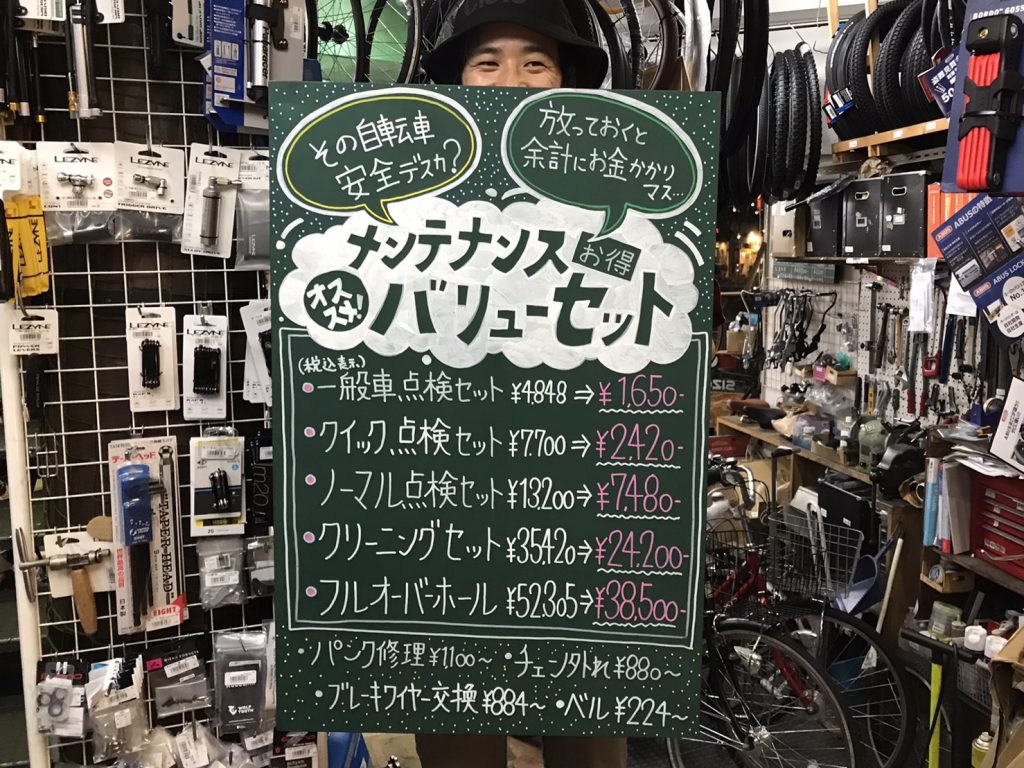 その自転車
安全デスカ?
放っておくと
余計にお金かかり
マス
メンテナンス お得
オススメ! バリューセット
(税込表示)
・一般車点検セット ¥4,848 ⇒ ¥1,650-
・クイック点検セット ¥7,700 ⇒ ¥2,420-
・ノーマル点検セット ¥13,200 ⇒ ¥7,480-
・クリーニングセット ¥35,420 ⇒ ¥24,200-
・フルオーバーホール ¥52,305 ⇒ ¥38,500-
・パンク修理 ¥1100〜 ・チェンタトれ ¥880〜
・ブレーキワイヤー交換 ¥884〜 ・ベル ¥224〜
LEZYNE
LEZYNE
LEZYNE
LEZYNE
LEZYNE
LEZYNE
テーパーヘッド
TAPER-HEAD
日本製
EIGHT
WOLF TOOTH
BORDO 6055
ABUSの特徴
ABUS LOCK